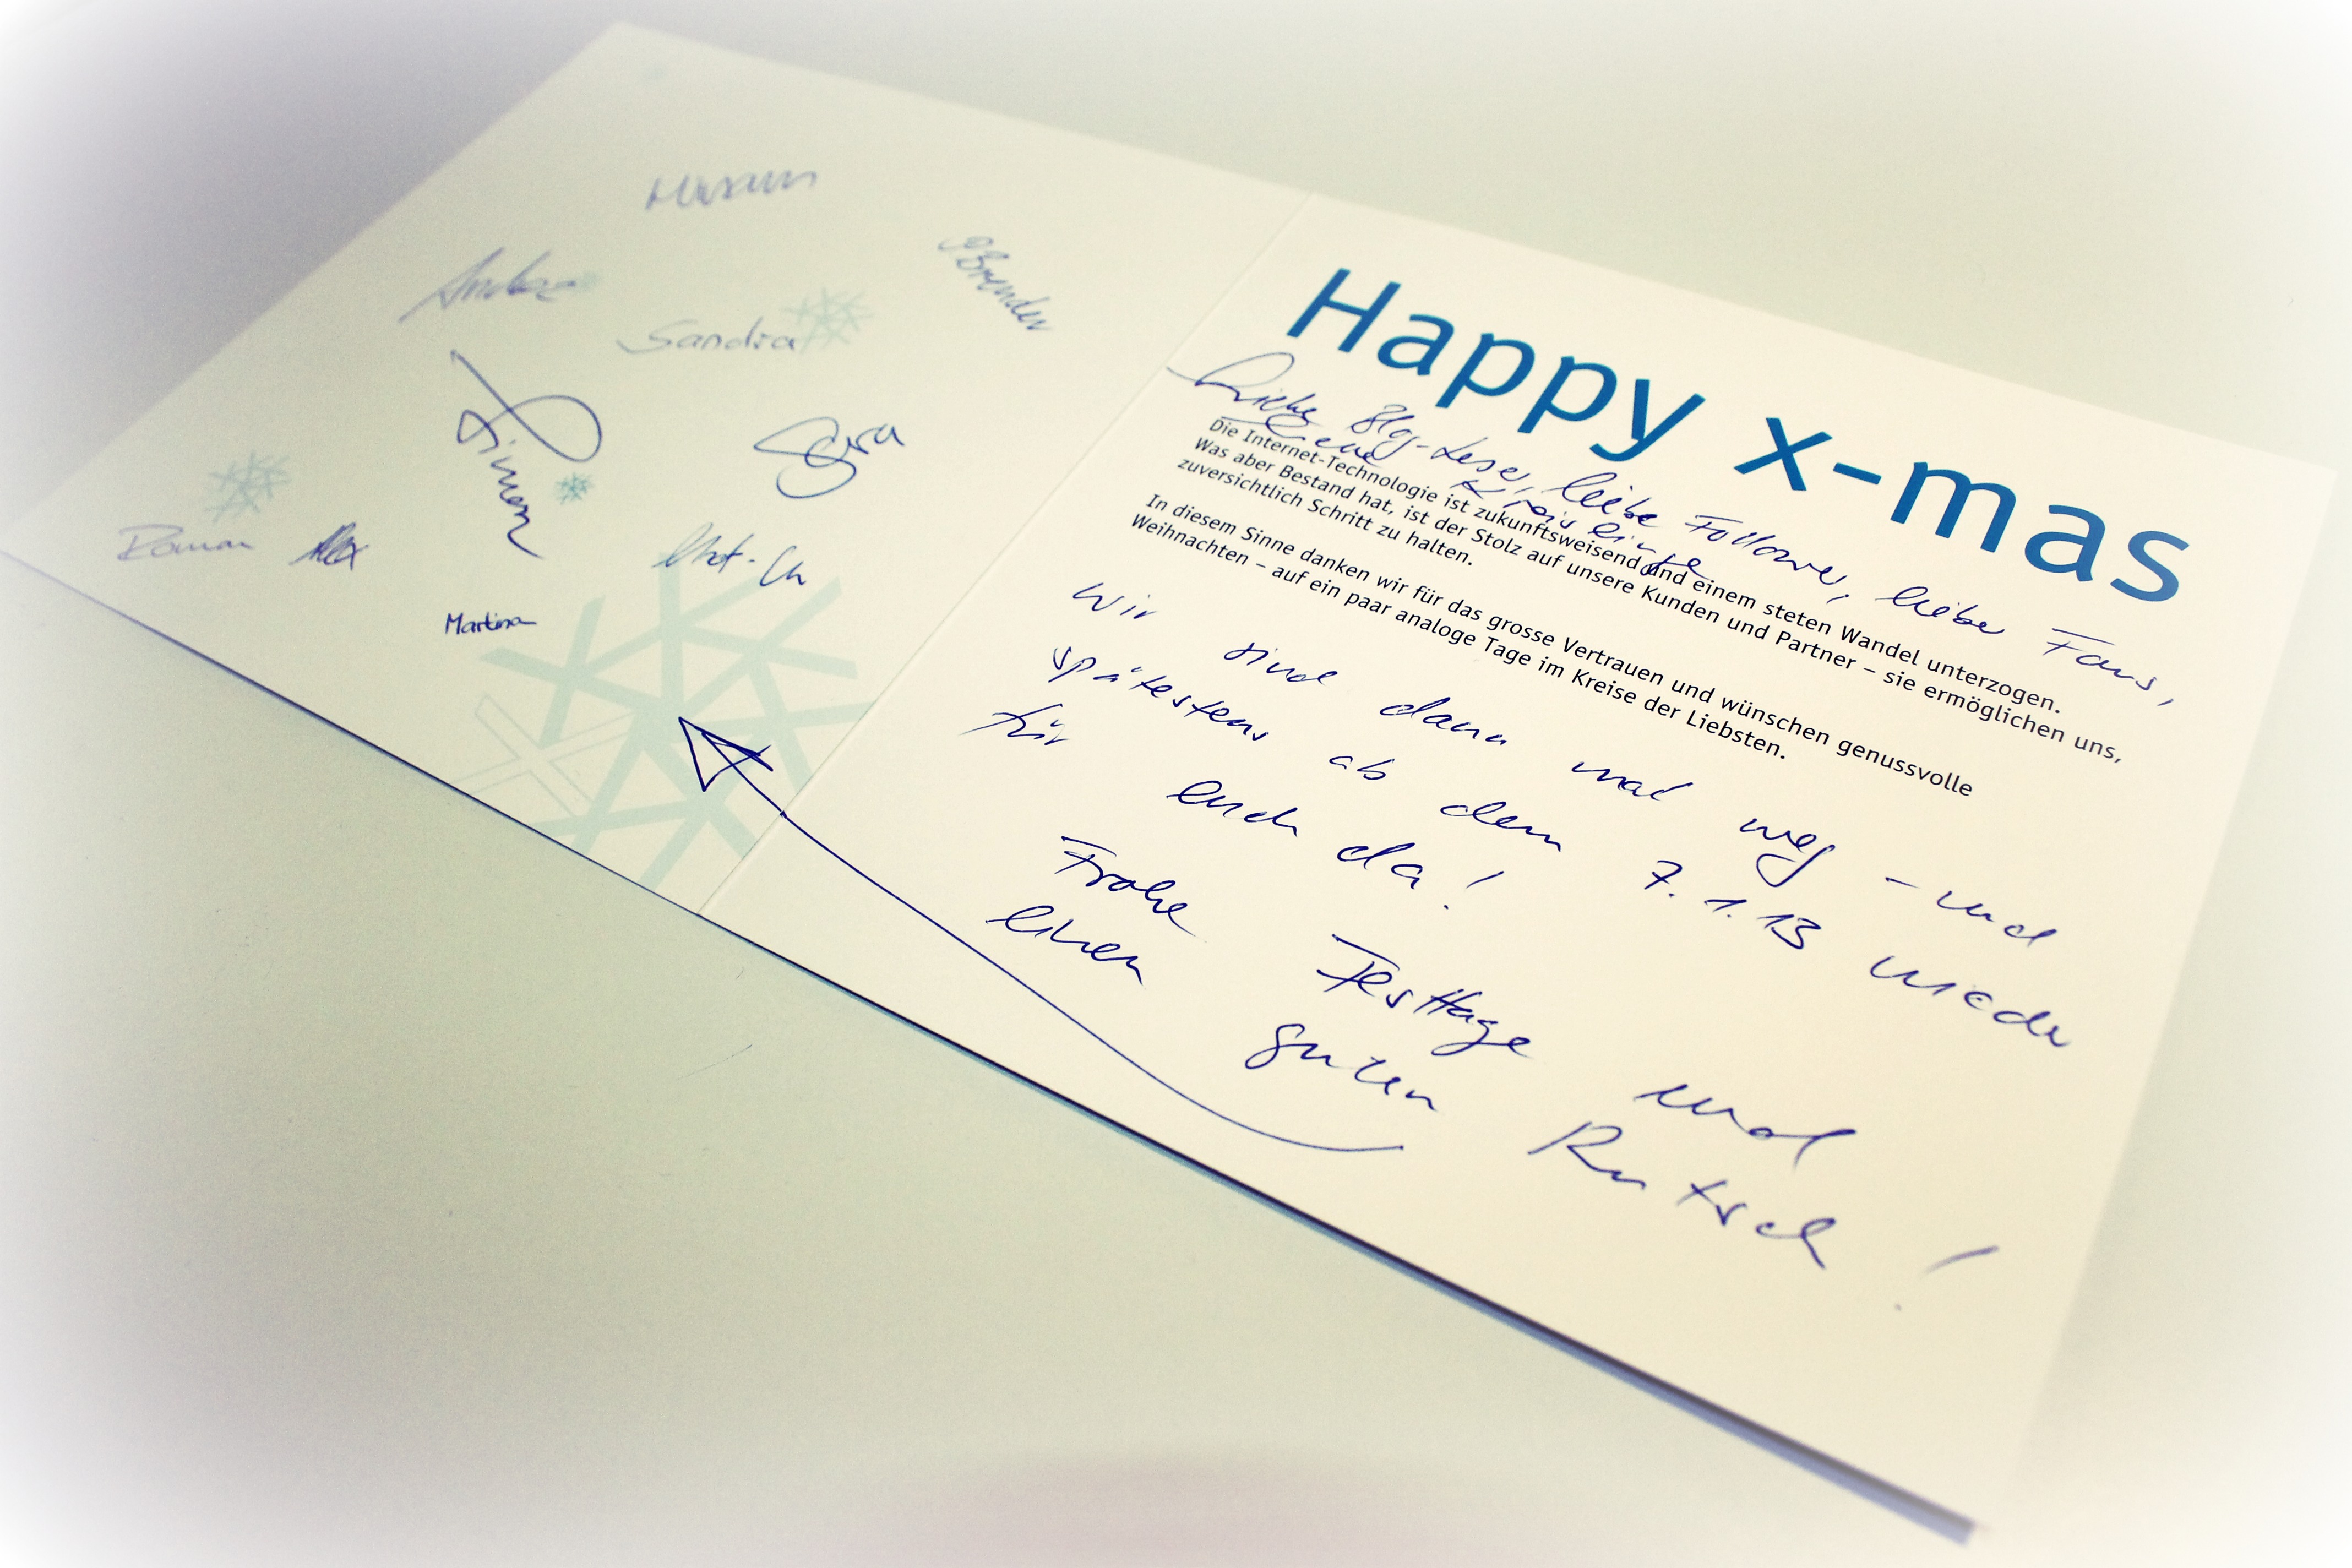 Sandra
Simon
Sara
Roman
Alex
Martina
Happy x-mas
Liebe Blog-Leser, liebe Follower, liebe Fans,
liebe
Die Internet-Technologie ist zukunftsweisend und einem steten Wandel unterzogen.
Was aber Bestand hat, ist der Stolz auf unsere Kunden und Partner – sie ermöglichen uns,
zuversichtlich Schritt zu halten.
In diesem Sinne danken wir für das grosse Vertrauen und wünschen genussvolle
Weihnachten – auf ein paar analoge Tage im Kreise der Liebsten.
Wir sind dann mal weg – und
spätestens ab dem 7.1.13 wieder
für euch da!
Frohe Festtage und
einen guten Rutsch!